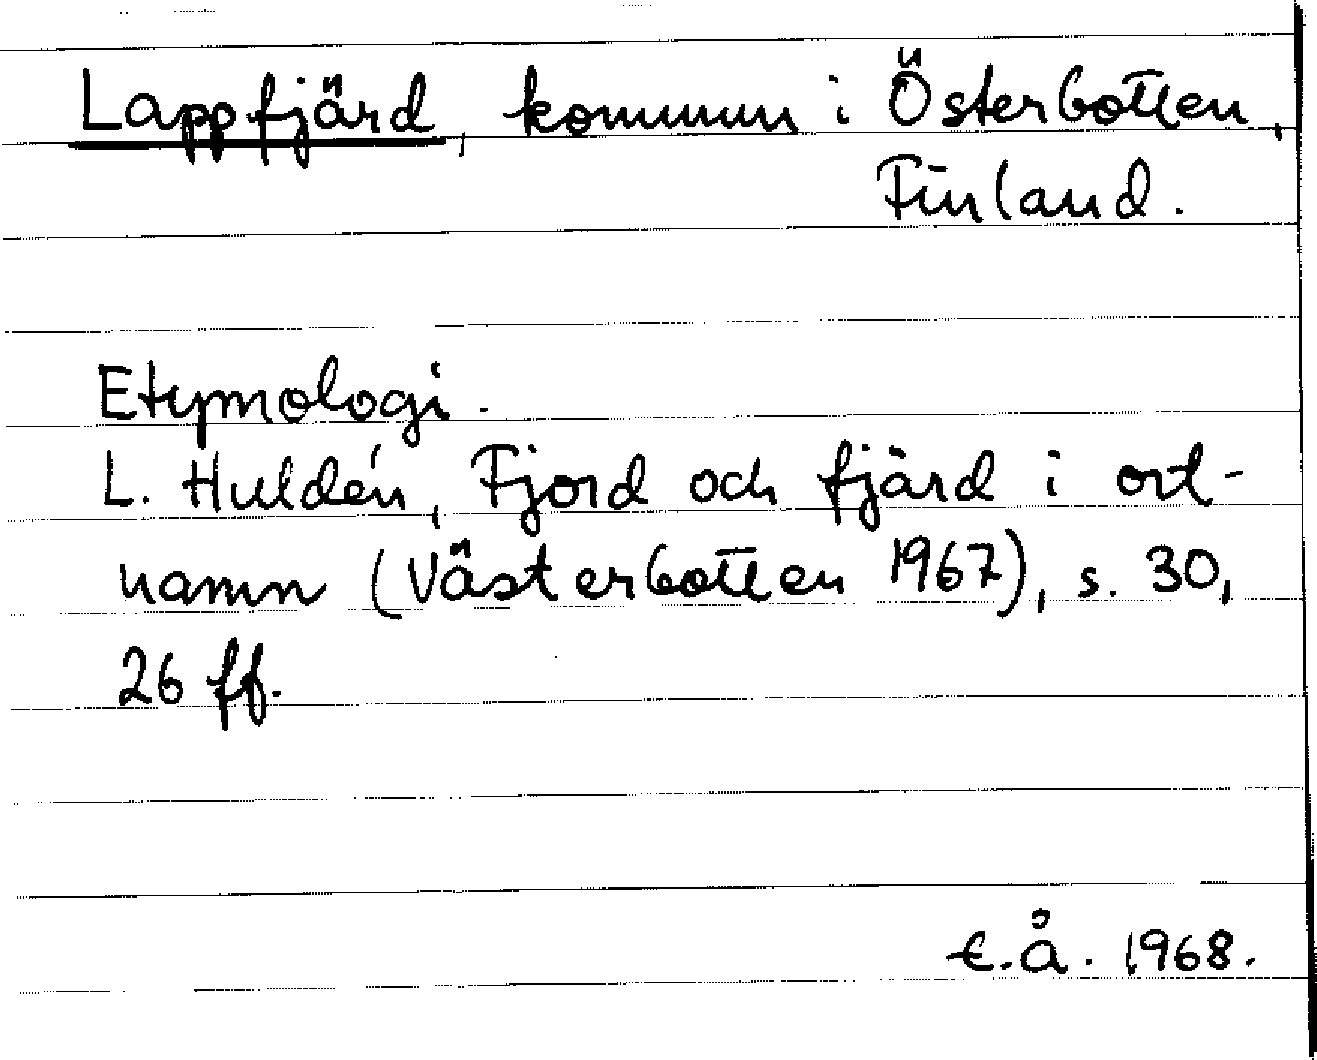 Lappfjärd, kommun i Österbotten,
Finland.
Etymologi.
L. Huldén, Fjord och fjärd i ort-
namn (Västerbotten 1967), s. 30,
26 ff.
E.Å. 1968.